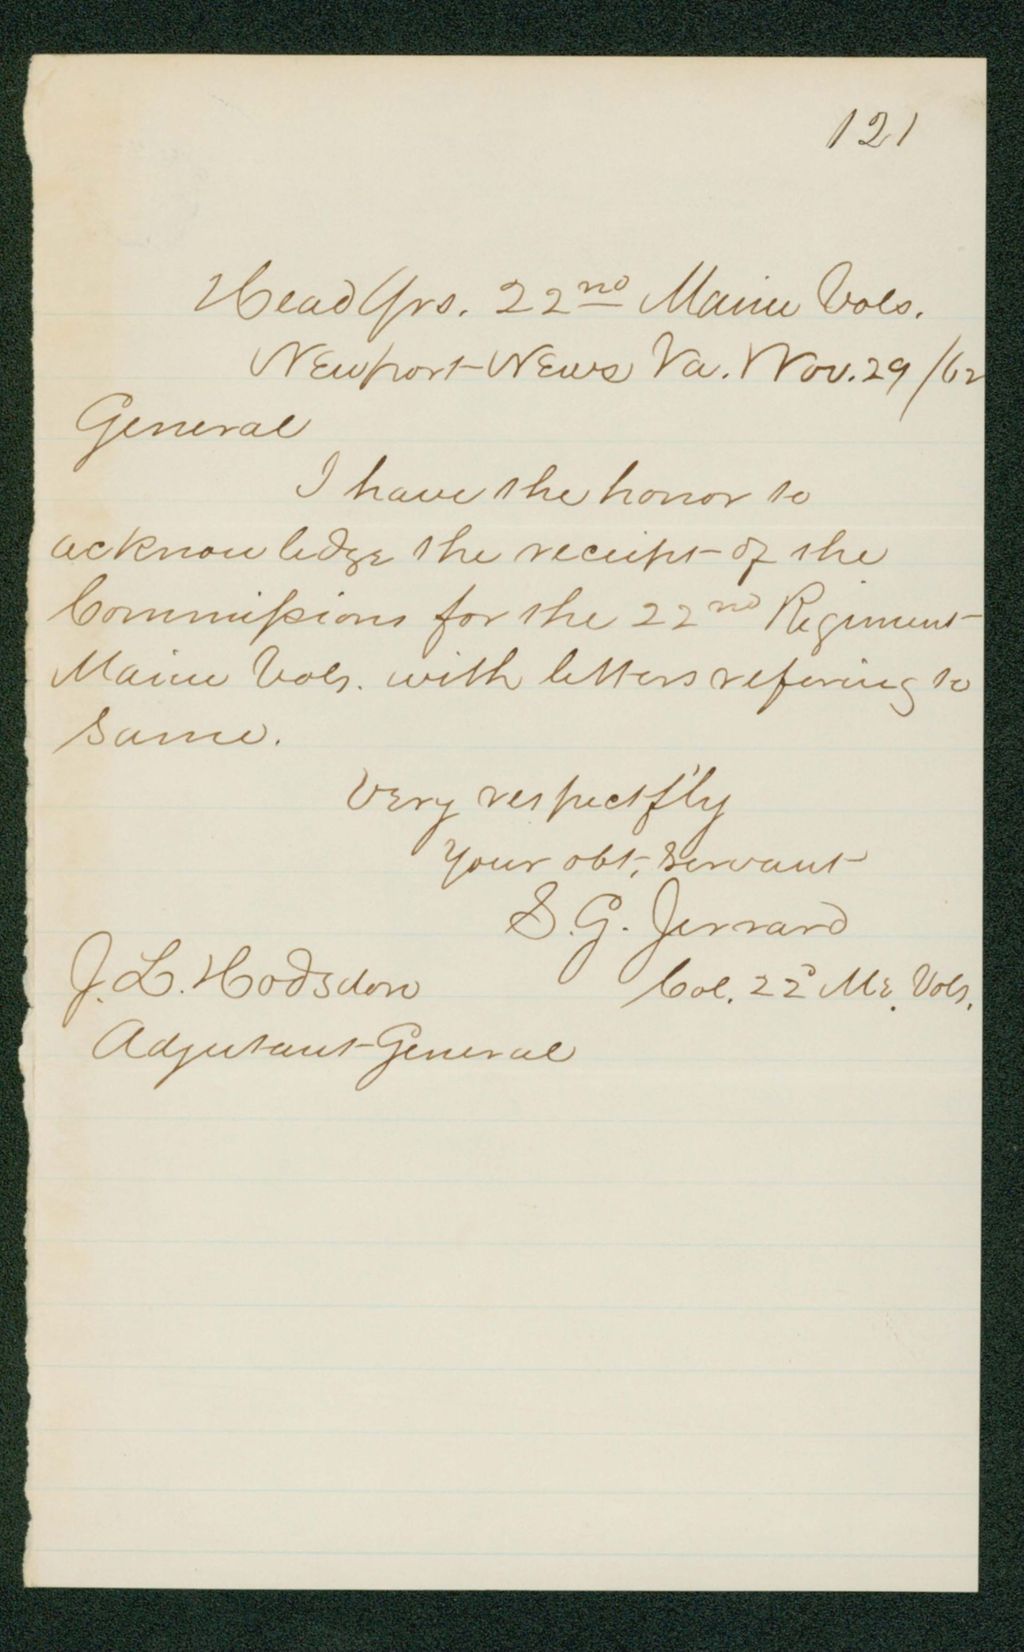 121
Head Qrs. 22nd Maine Vols.
Newport News Va. Nov. 29/62
General
I have the honor to
acknowledge the receipt of the
Commissions for the 22nd Regiment
Maine Vols. with letters refering to
same.
Very respectf'ly
Your obt. servant
S. G. Jerrard
Col. 22d Me. Vols.
J. L. Hodsdon
Adjutant General